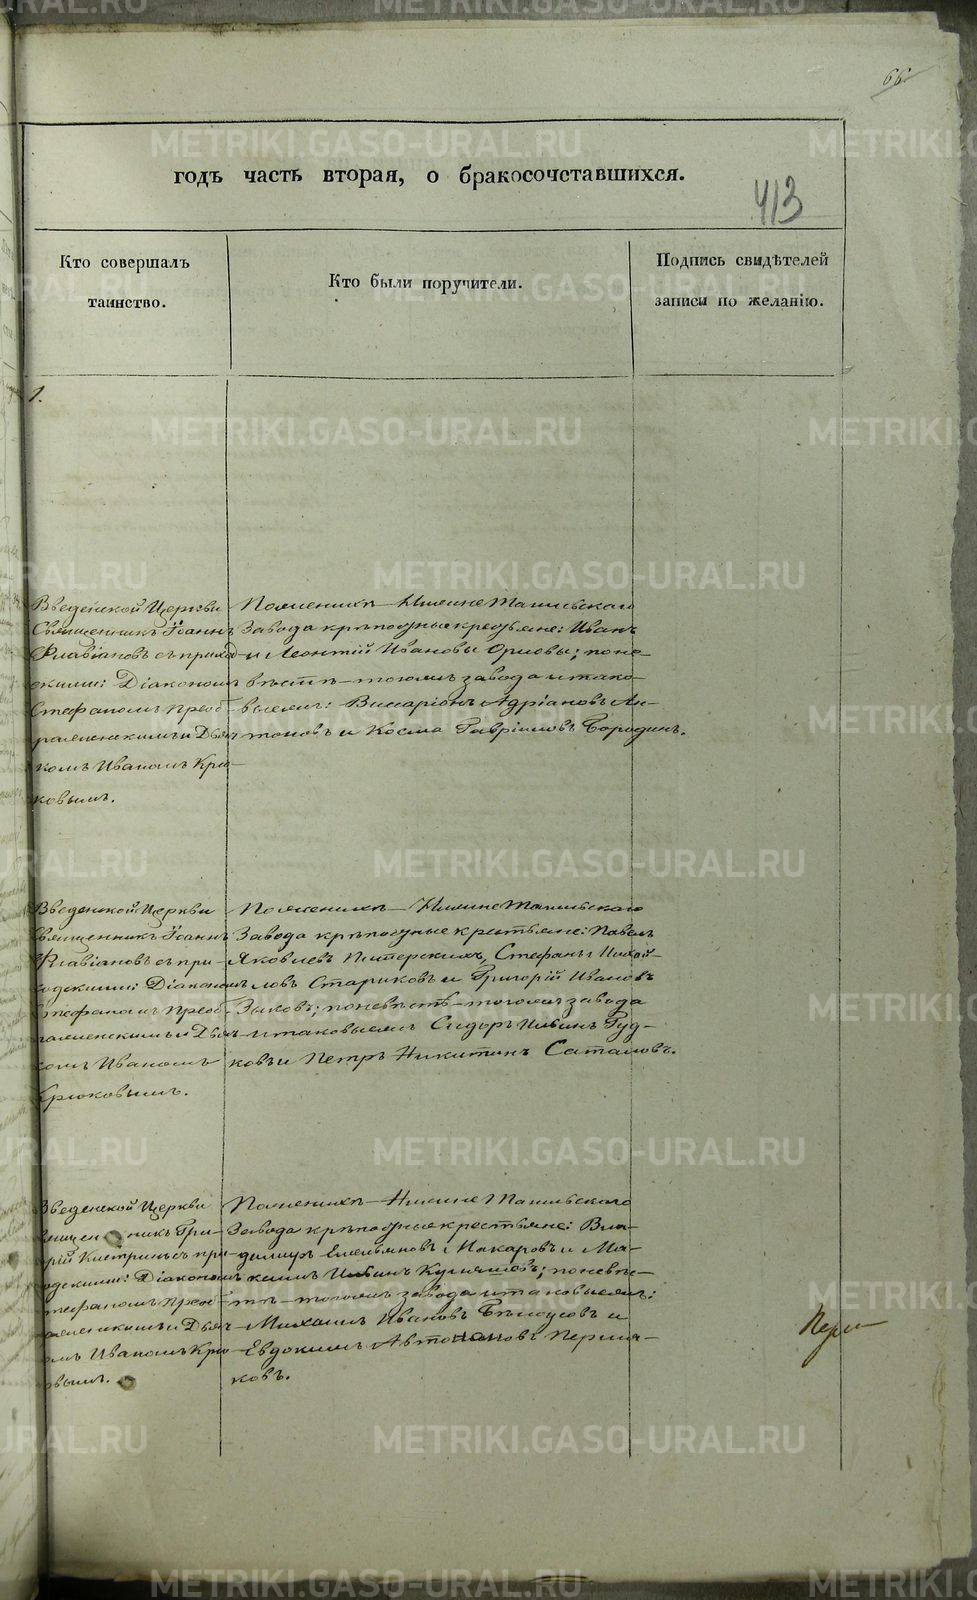 66
годъ часть вторая, о бракосочставшихся.
413
Кто совершалъ
таинство.
Кто были поручители.
Подпись свидѣтелей
записи по желанію.
1.
Введенской Церкви
Священникъ Іоаннъ
Флавіановъ съ приход-
скими: Діакономъ
Стефаномъ Преоб-
раженскимъ и Дьяч-
комъ Иваномъ Крю-
ковымъ.
По женихѣ – Нижне Тагильскаго
Завода крѣпостные крестьяне: Иванъ
и Леонтій Ивановы Орловы; по не-
вѣстѣ – тогожъ завода и тако-
выежъ: Виссаріонъ Адріановъ Ан-
тоновъ и Косма Гавріиловъ Бородинъ.
Введенской Церкви
Священникъ Іоаннъ
Флавіановъ съ при-
ходскими: Діакономъ
Стефаномъ Преоб-
раженскимъ и Дьяч-
комъ Иваномъ
Крюковымъ.
По женихѣ – Нижне Тагильскаго
Завода крѣпостные крестьяне: Павелъ
Яковлевъ Питерскихъ, Стефанъ Михай-
ловъ Стариковъ и Григорій Ивановъ
Зыковъ; по невѣстѣ – тогожъ завода
и таковыежъ Сидоръ Ильинъ Руд-
ковъ и Петръ Никитинъ Саталовъ.
Введенской Церкви
Священникъ Гри-
горій Кистринъ съ при-
ходскими: Діакономъ
Стефаномъ Преоб-
раженскимъ и Дьяч-
комъ Иваномъ Крю-
ковымъ.
По женихѣ – Нижне Тагильскаго
Завода крѣпостные крестьяне: Вла-
димиръ Емельяновъ Макаровъ и Ма-
ксимъ Ильинъ Куляшовъ; по невѣс-
тѣ – тогожъ завода и таковыежъ:
Михаилъ Ивановъ Бѣлоусовъ и
Евдокимъ Автономовъ Пермя-
ковъ.
METRIKI.GASO-URAL.RU